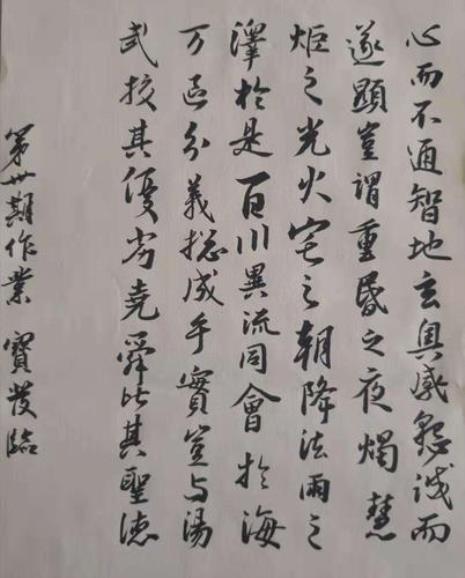 心而不通智地玄奥感懇誠而
遂顯豈謂重昏之夜燭慧
炬之光火宅之朝降法雨之
澤於是百川異流同會於海
万區分義揔成乎實豈与湯
武挍其優劣堯舜比其聖德
第卅期作業 寶發臨